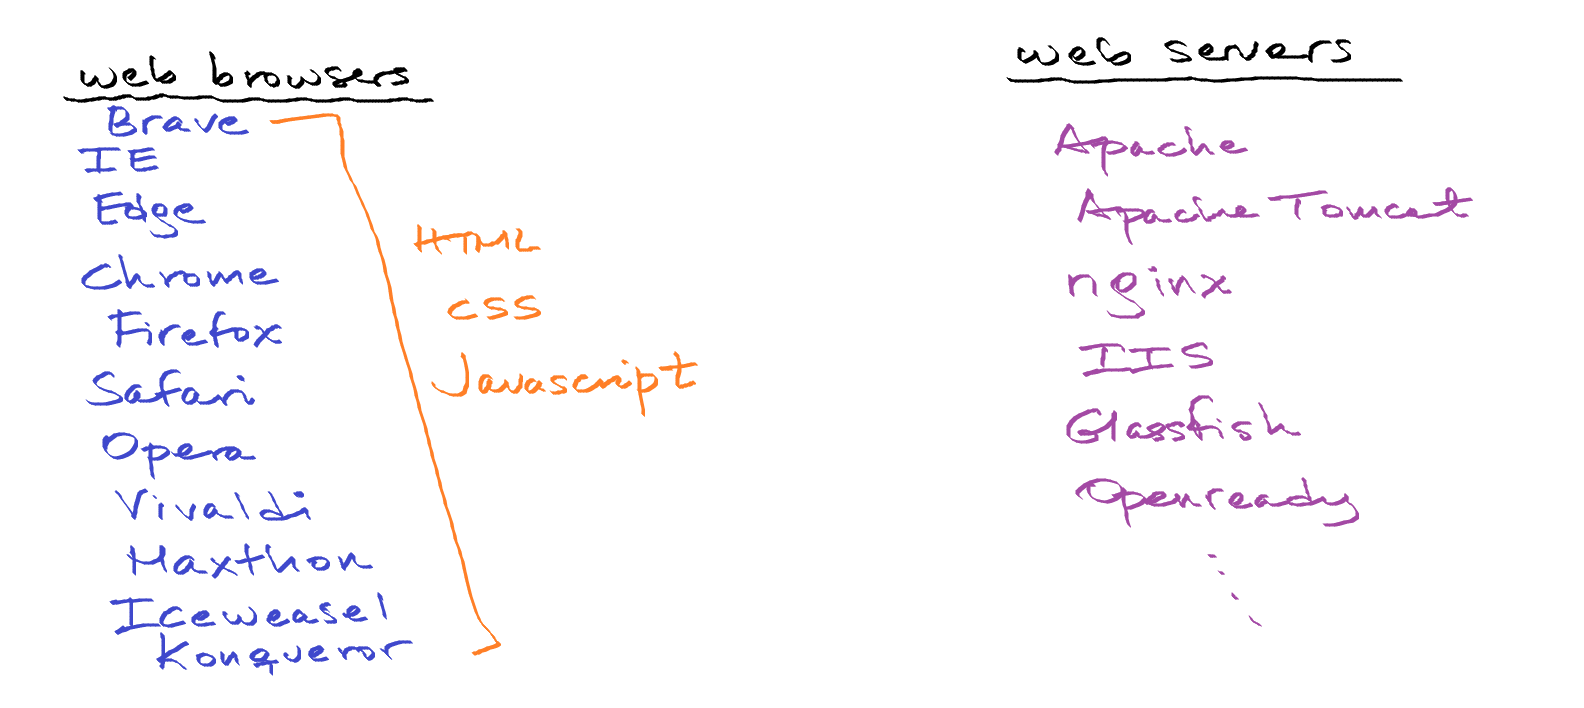 web browsers
Brave
IE
Edge
Chrome
Firefox
Safari
Opera
Vivaldi
Maxthon
Iceweasel
Konqueror
HTML
CSS
Javascript
web servers
Apache
Apache Tomcat
nginx
IIS
Glassfish
Openready